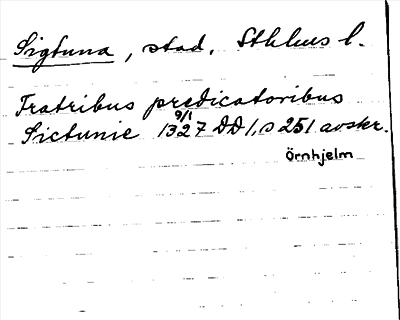 Sigtuna, stad. Sthlms l.
Fratribus predicatoribus
9/1
Sictunie 1327 DD1, s 251 avskr.
Örnhjelm